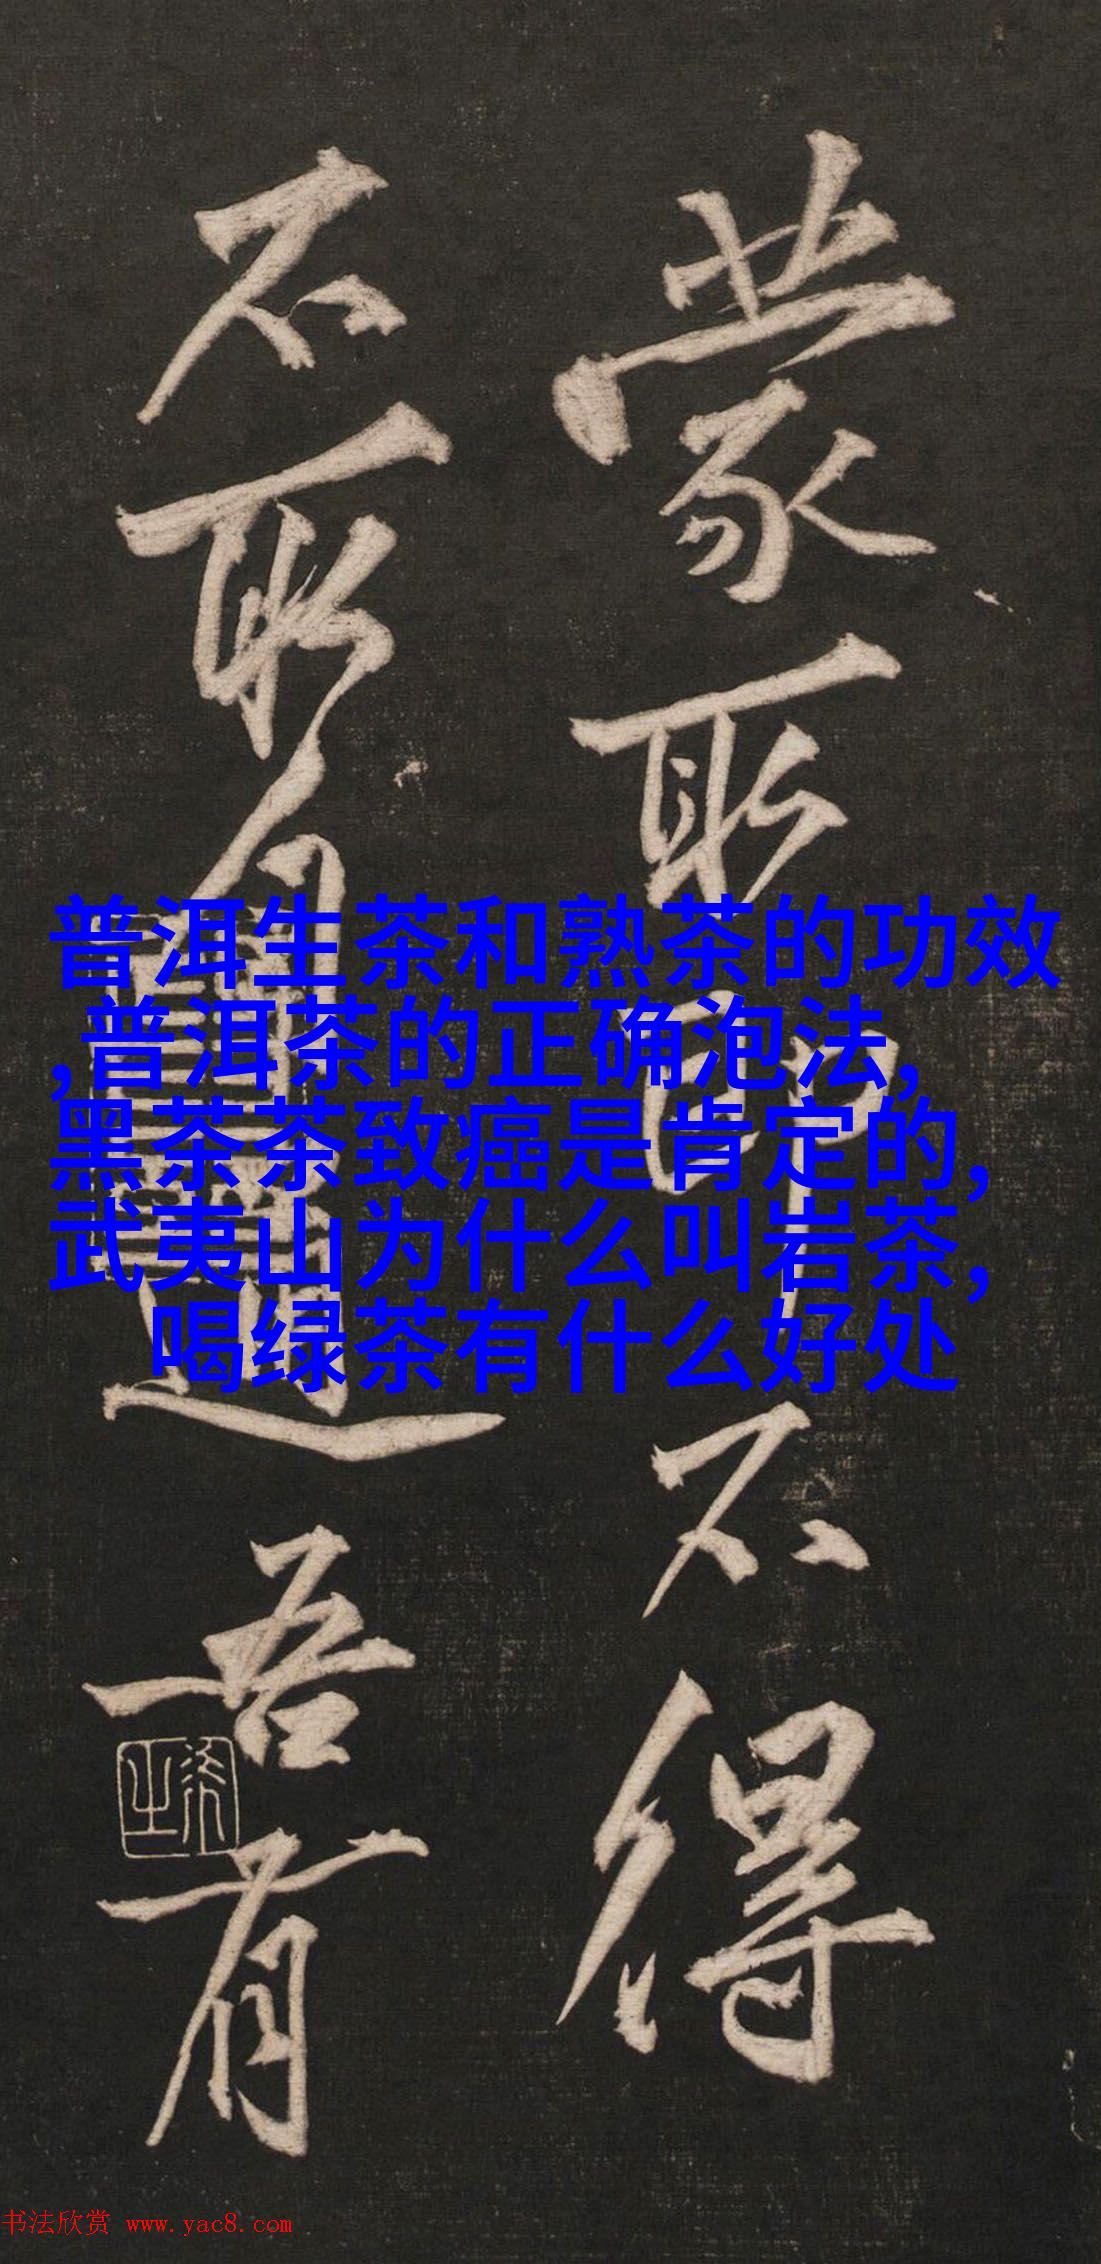 蒙耻即不得
不耻有
逼吾有
普洱生茶和熟茶的功效
,普洱茶的正确泡法,
黑茶茶致癌是肯定的,
武夷山为什么叫岩茶,
喝绿茶有什么好处
书法欣赏 www.yac8.com